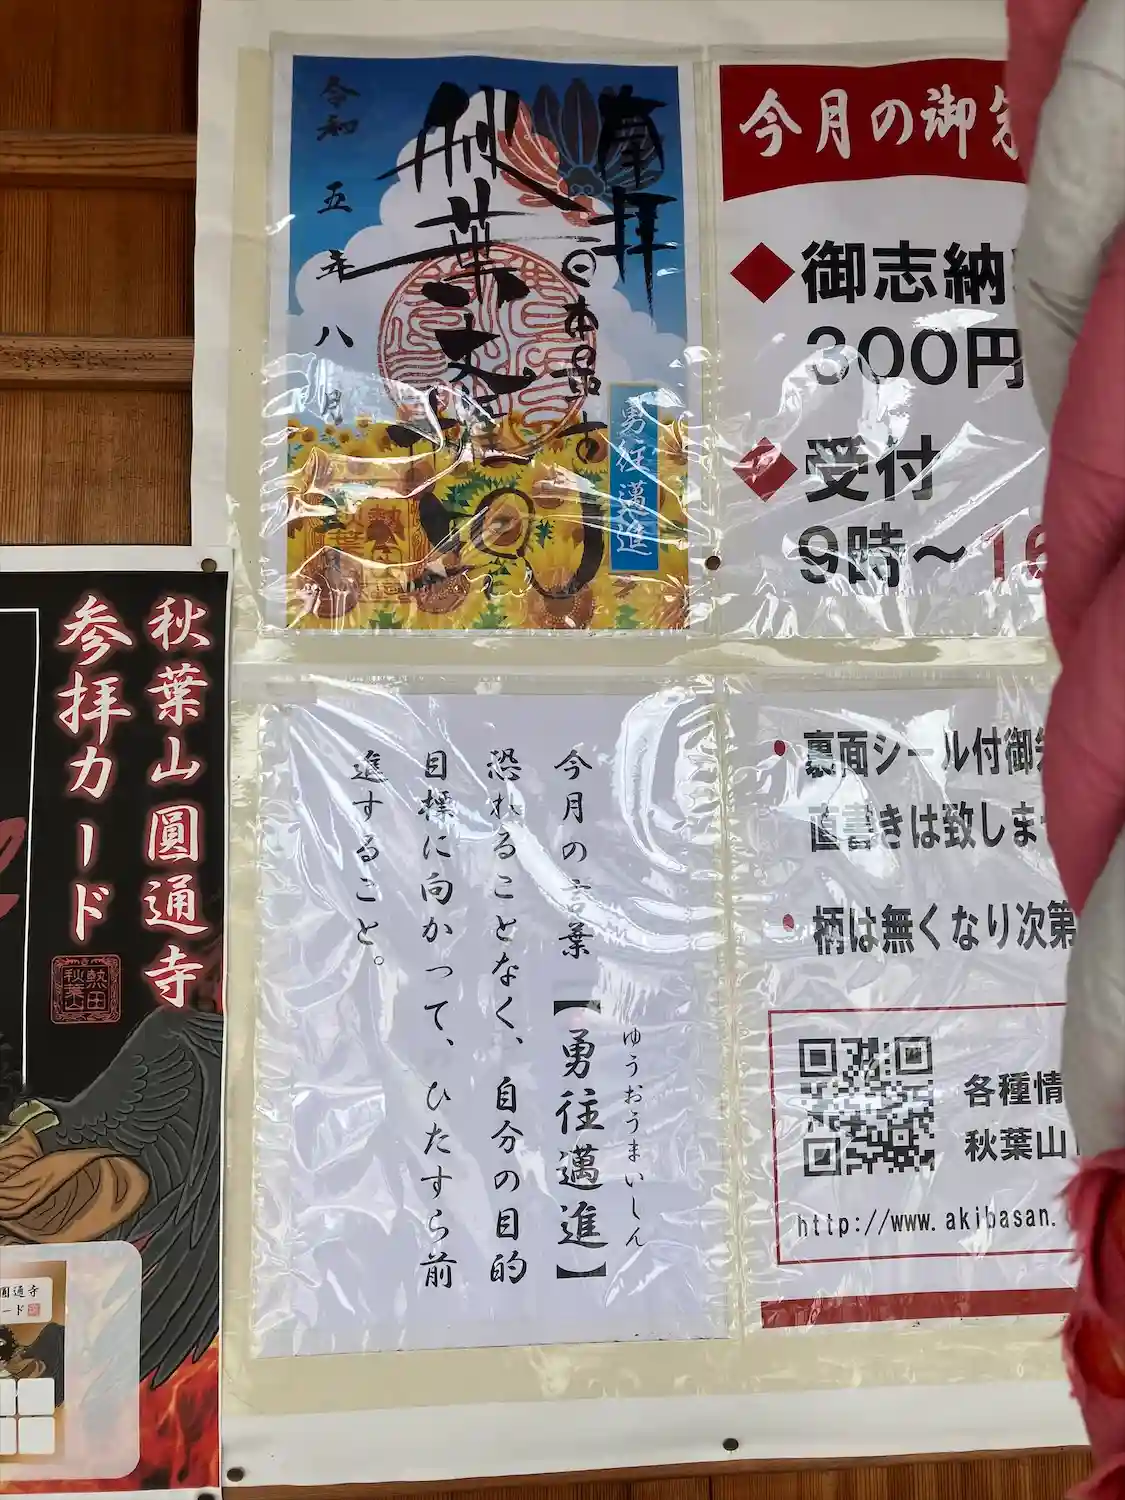 奉拝
日本最古
秋葉大権現
令和五年八月
勇往邁進
今月の御
御志納
300円
受付
9時〜16
秋葉山圓通寺
参拝カード
熱田
秋葉山
今月の言葉【勇往邁進】
ゆうおうまいしん
恐れることなく、自分の目的
目標に向かって、ひたすら前
進すること。
裏面シール付御朱
直書きは致しま
柄は無くなり次第
各種情
秋葉山
http://www.akibasan.
圓通寺
ード